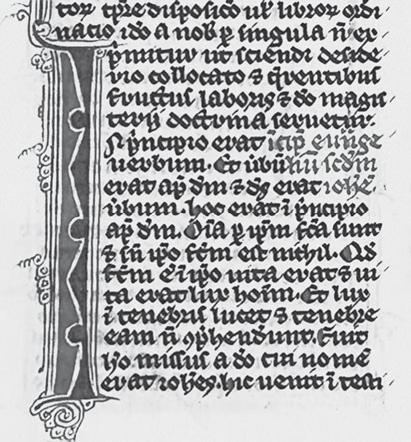 tor tp̄re disposicō ul̄ libroꝝ ordi
nacio idō a nob̄ ꝑ singula n̄ ex
p̄nitur ut sciendi deside
rio collocato ⁊ q̄rentibus
fructus laboris ⁊ dō magis
terij doctrina seruetur.
N pⁱncipio erat īcip̄ euūge
uerbum. Et ūbū liū scd̄m
erat ap̄ dm̄ ⁊ ds̄ erat ioh̄e.
ūbum. hoc erat ī pⁱncipio
ap̄ dm̄. Oīa ꝑ ip̄m fc̄a sunt
⁊ sn̄ ip̄o fc̄m est nichil. Qd̄
fc̄m ē ī ip̄o uita erat ⁊ ui
ta erat lux hoīm. Et lux
ī tenebris lucet ⁊ tenebre
eam n̄ ꝯphendunt. Fuit
hō. missus a dō cui nomē
erat ioh̄es. hic uenit ī testi